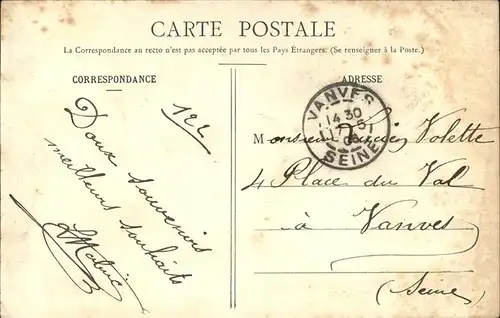 CARTE POSTALE
La Correspondance au recto n'est pas acceptée par tous les Pays Étrangers. (Se renseigner à la Poste.)
CORRESPONDANCE
124
Doux souvenirs
meilleurs souhaits
ADRESSE
VANVES
14 30
17-5
SEINE
Monsieur Volette
4 Place du Val
à Vanves
(Seine)